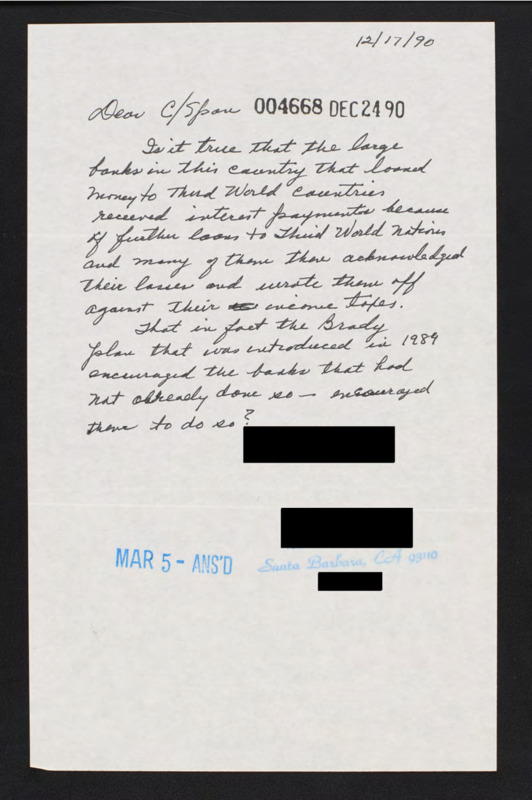 12/17/90
Dear C/Span 004668 DEC 24 90
Is it true that the large
banks in this country that loaned
money to Third World Countries
received interest payments because
of further loans to Third World Nations
and many of them then acknowledged
their losses and wrote them off
against their income taxes.
That in fact the Brady
plan that was introduced in 1989
encouraged the banks that had
not already done so — encouraged
them to do so?
MAR 5 - ANS'D Santa Barbara, CA 93110